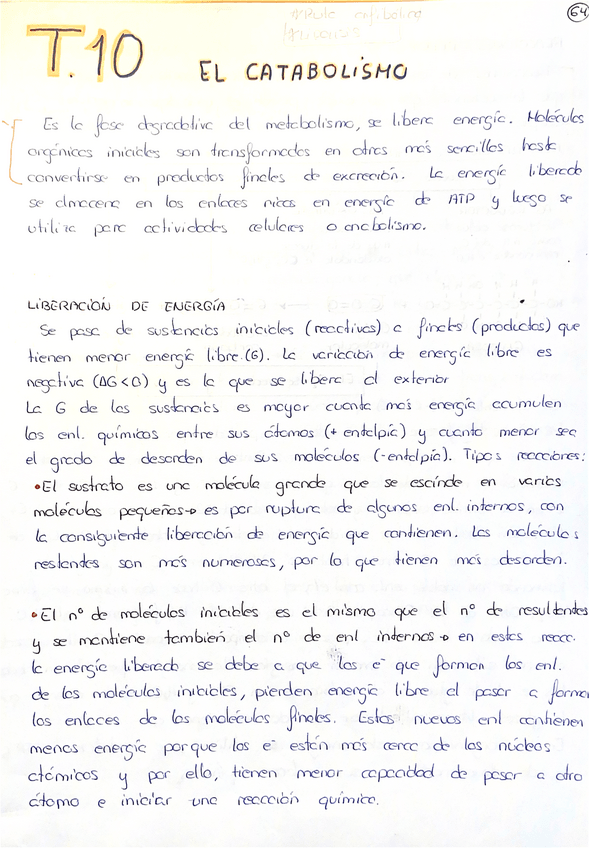 64
T.10
EL CATABOLISMO
Es la fase degradativa del metabolismo, se libera energía. Moléculas
orgánicas iniciales son transformadas en otras más sencillas hasta
convertirse en productos finales de excreción. La energía liberada
se almacena en los enlaces ricos en energía de ATP y luego se
utiliza para actividades celulares o anabolismo.
LIBERACIÓN DE ENERGÍA
Se pasa de sustancias iniciales (reactivos) a finales (productos) que
tienen menor energía libre (G). La variación de energía libre es
negativa (ΔG<0) y es la que se libera al exterior
La G de las sustancias es mayor cuanta más energía acumulen
los enl. químicos entre sus átomos (+ entalpía) y cuanto menor sea
el grado de desorden de sus moléculas (-entalpía). Tipos reacciones:
•El sustrato es una molécula grande que se escinde en varias
moléculas pequeñas→ es por ruptura de algunos enl. internos, con
la consiguiente liberación de energía que contienen. Las moléculas
restantes son más numerosas, por lo que tienen más desorden.
•El nº de moléculas iniciales es el mismo que el nº de resultantes
y se mantiene también el nº de enl internos→ en estas reacc.
la energía liberada se debe a que los e⁻ que forman los enl.
de las moléculas iniciales, pierden energía libre al pasar a formar
los enlaces de las moléculas finales. Estos nuevos enl contienen
menos energía porque los e⁻ están más cerca de los núcleos
atómicos y por ello, tienen menor capacidad de pasar a otro
átomo e iniciar una reacción química.